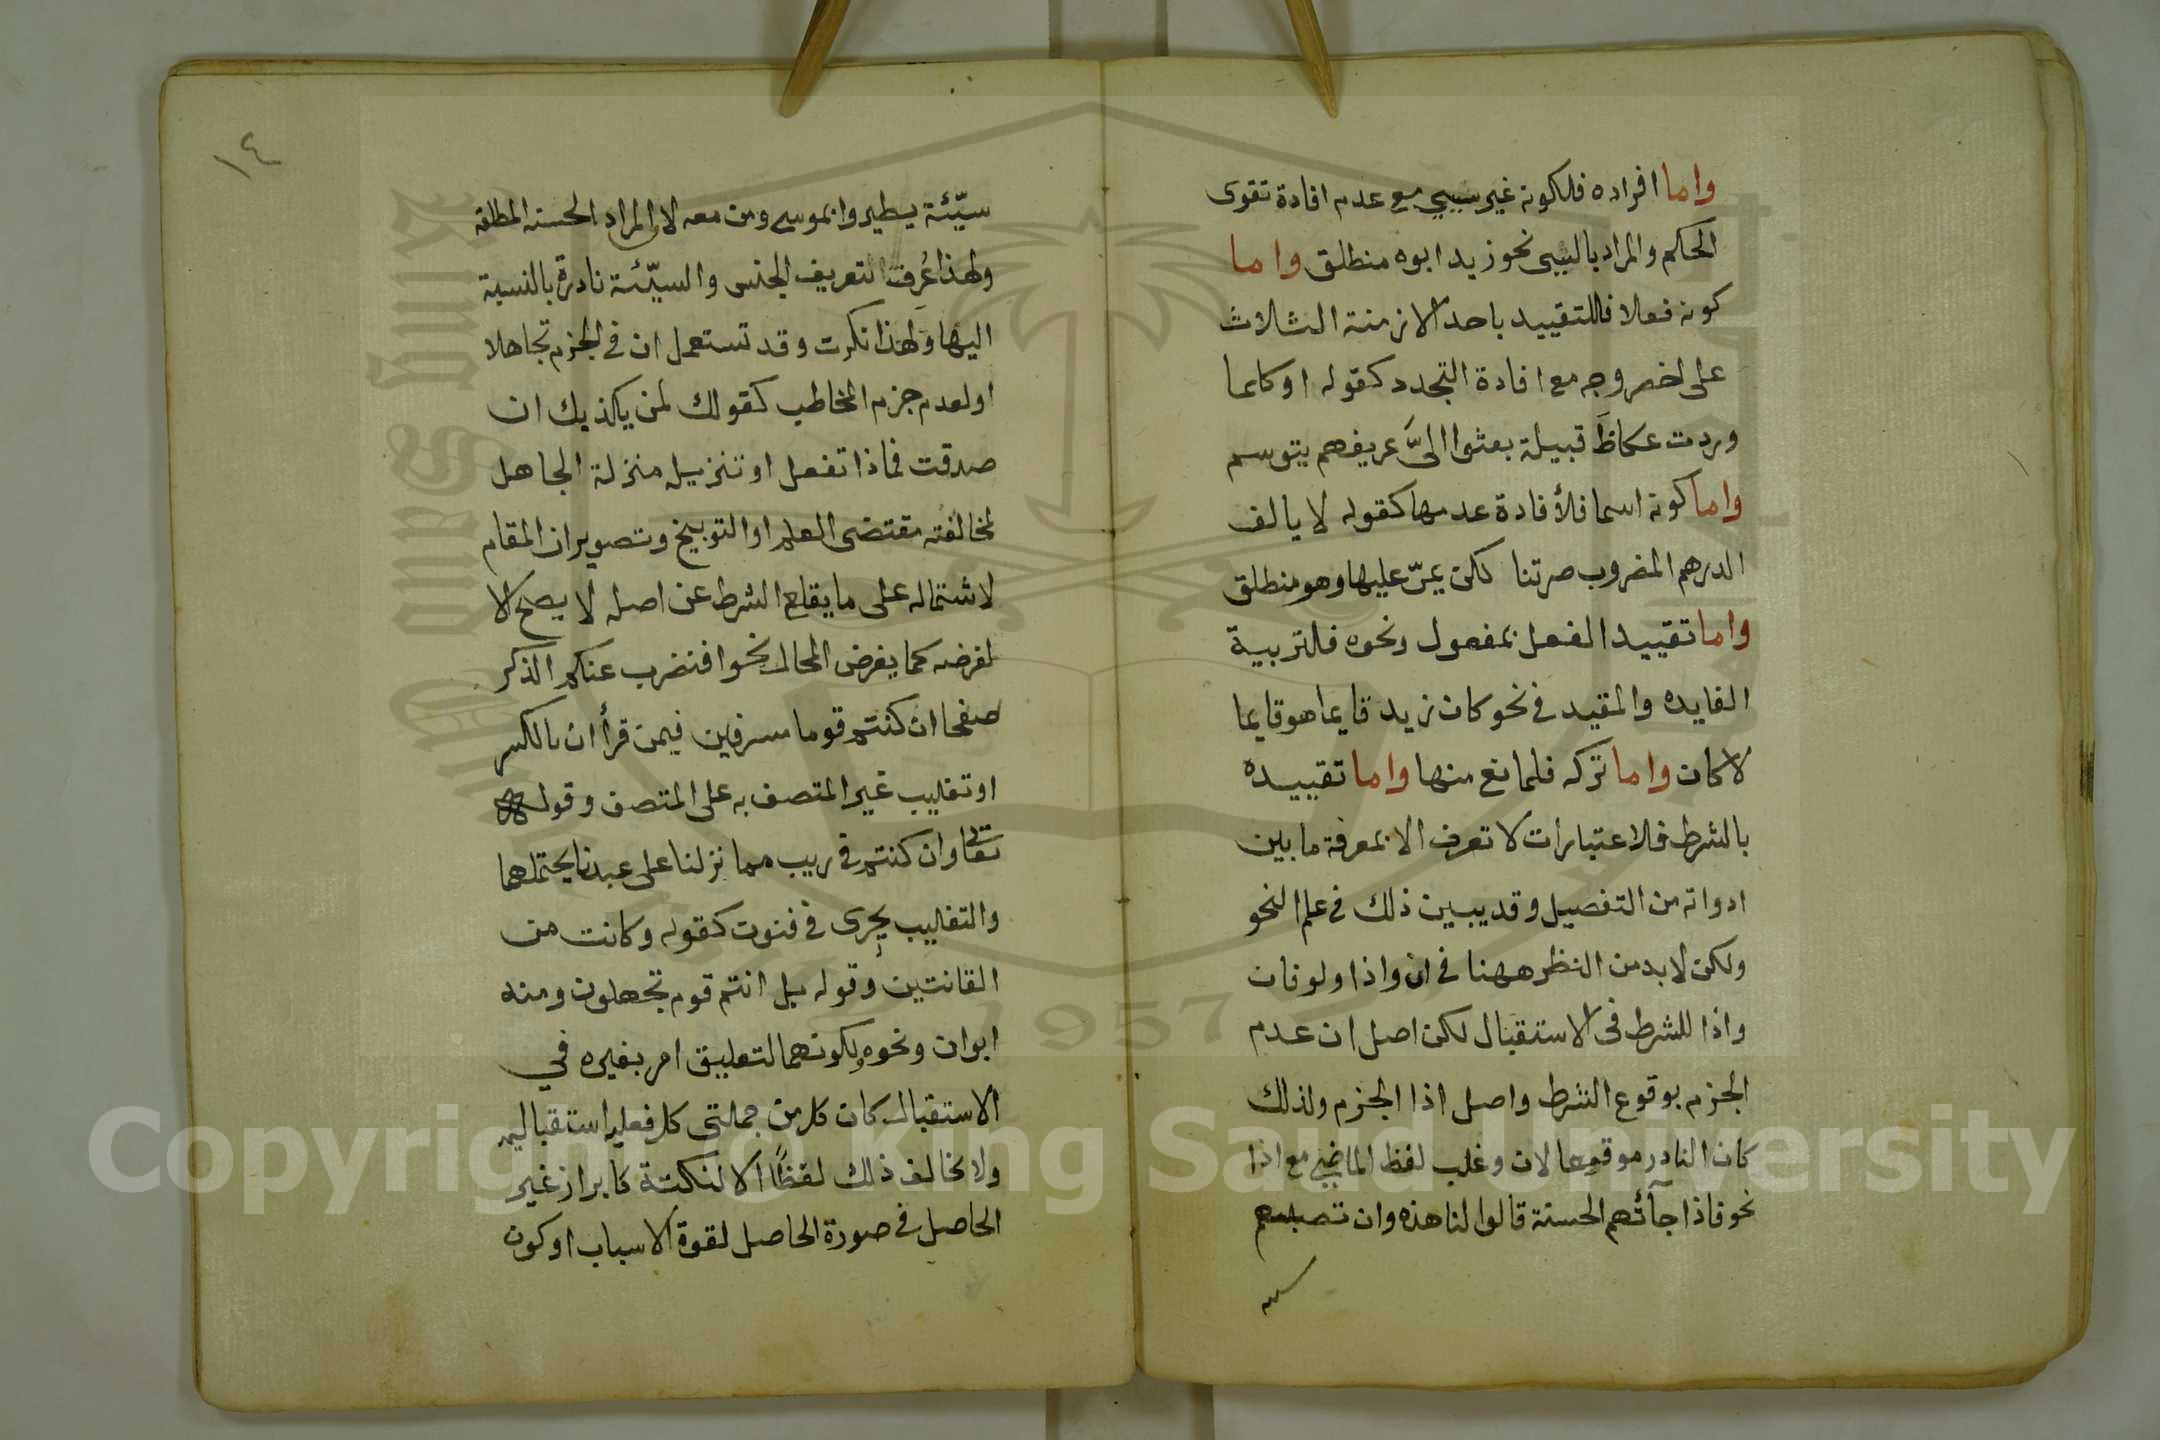 واما افراده فلكونه غير سببي مع عدم افادة تقوى
الحكم والمراد بالسببى نحو زيد ابوه منطلق واما
كونه فعلا فللتقييد باحد الازمنة الثلاث
على اخصر وجه مع افادة التجدد كقوله اوكلما
وردت عكاظَ قبيلة بعثوا الىَّ عريفهم يتوسم
واما كونه اسما فلأفادة عدمها كقوله لا يالف
الدرهم المضروب صرتنا لكن يمرّ عليها وهو منطلق
واما تقييد الفعل بمفعول ونحوه فلتربية
الفايده والمقيد في نحو كان زيد قايما هو قايما
لا كان واما تركه فلمانع منها واما تقييده
بالشرط فلاعتبارات لا تعرف الا بمعرفة ما بين
ادواته من التفصيل وقد يبين ذلك في علم النحو
ولكن لابد من النظر ههنا في ان واذا ولو فان
واذا للشرط فى الاستقبال لكن اصل ان عدم
الجزم بوقوع الشرط واصل اذا الجزم ولذلك
كان النادر موقعا لان وغلب لفظ الماضي مع اذا
نحو فاذا جآئتهم الحسنة قالوا لنا هذه وان تصبهم
١٤
سيّئة يطيروا بموسى ومن معه لان المراد الحسنه المطلقه
ولهذا عُرفت التعريف الجنس والسيّئة نادرة بالنسبة
اليها ولهذا نكرت وقد تستعمل ان في الجزم تجاهلا
او لعدم جزم المخاطب كقولك لمن يكذبك ان
صدقت فماذا تفعل او تنزيله منزلة الجاهل
لمخالفته مقتضى العلم او التوبيخ وتصوير ان المقام
لاشتماله على ما يقلع الشرط عن اصله لا يصح الا
لفرضه كما يفرض المحال نحو افنضرب عنكم الذكر
صفحا ان كنتم قوما مسرفين فيمن قرأ ان بالكسر
او تغليب غير المتصف به على المتصف وقوله
تعالى وان كنتم في ريب مما نزلنا على عبدنا يحتملهما
والتغليب يجرى في فنون كقوله وكانت من
القانتين وقوله بل انتم قوم تجهلون ومنه
ابوان ونحوه ولكونهما لتعليق امر بغيره في
الاستقبال كان كل من جملتى كل فعليه استقباليه
ولا يخالف ذلك لفظًا الا لنكتة كابراز غير
الحاصل في صورة الحاصل لقوة الاسباب او كون
King Saud University
1957
Copyright to King Saud University